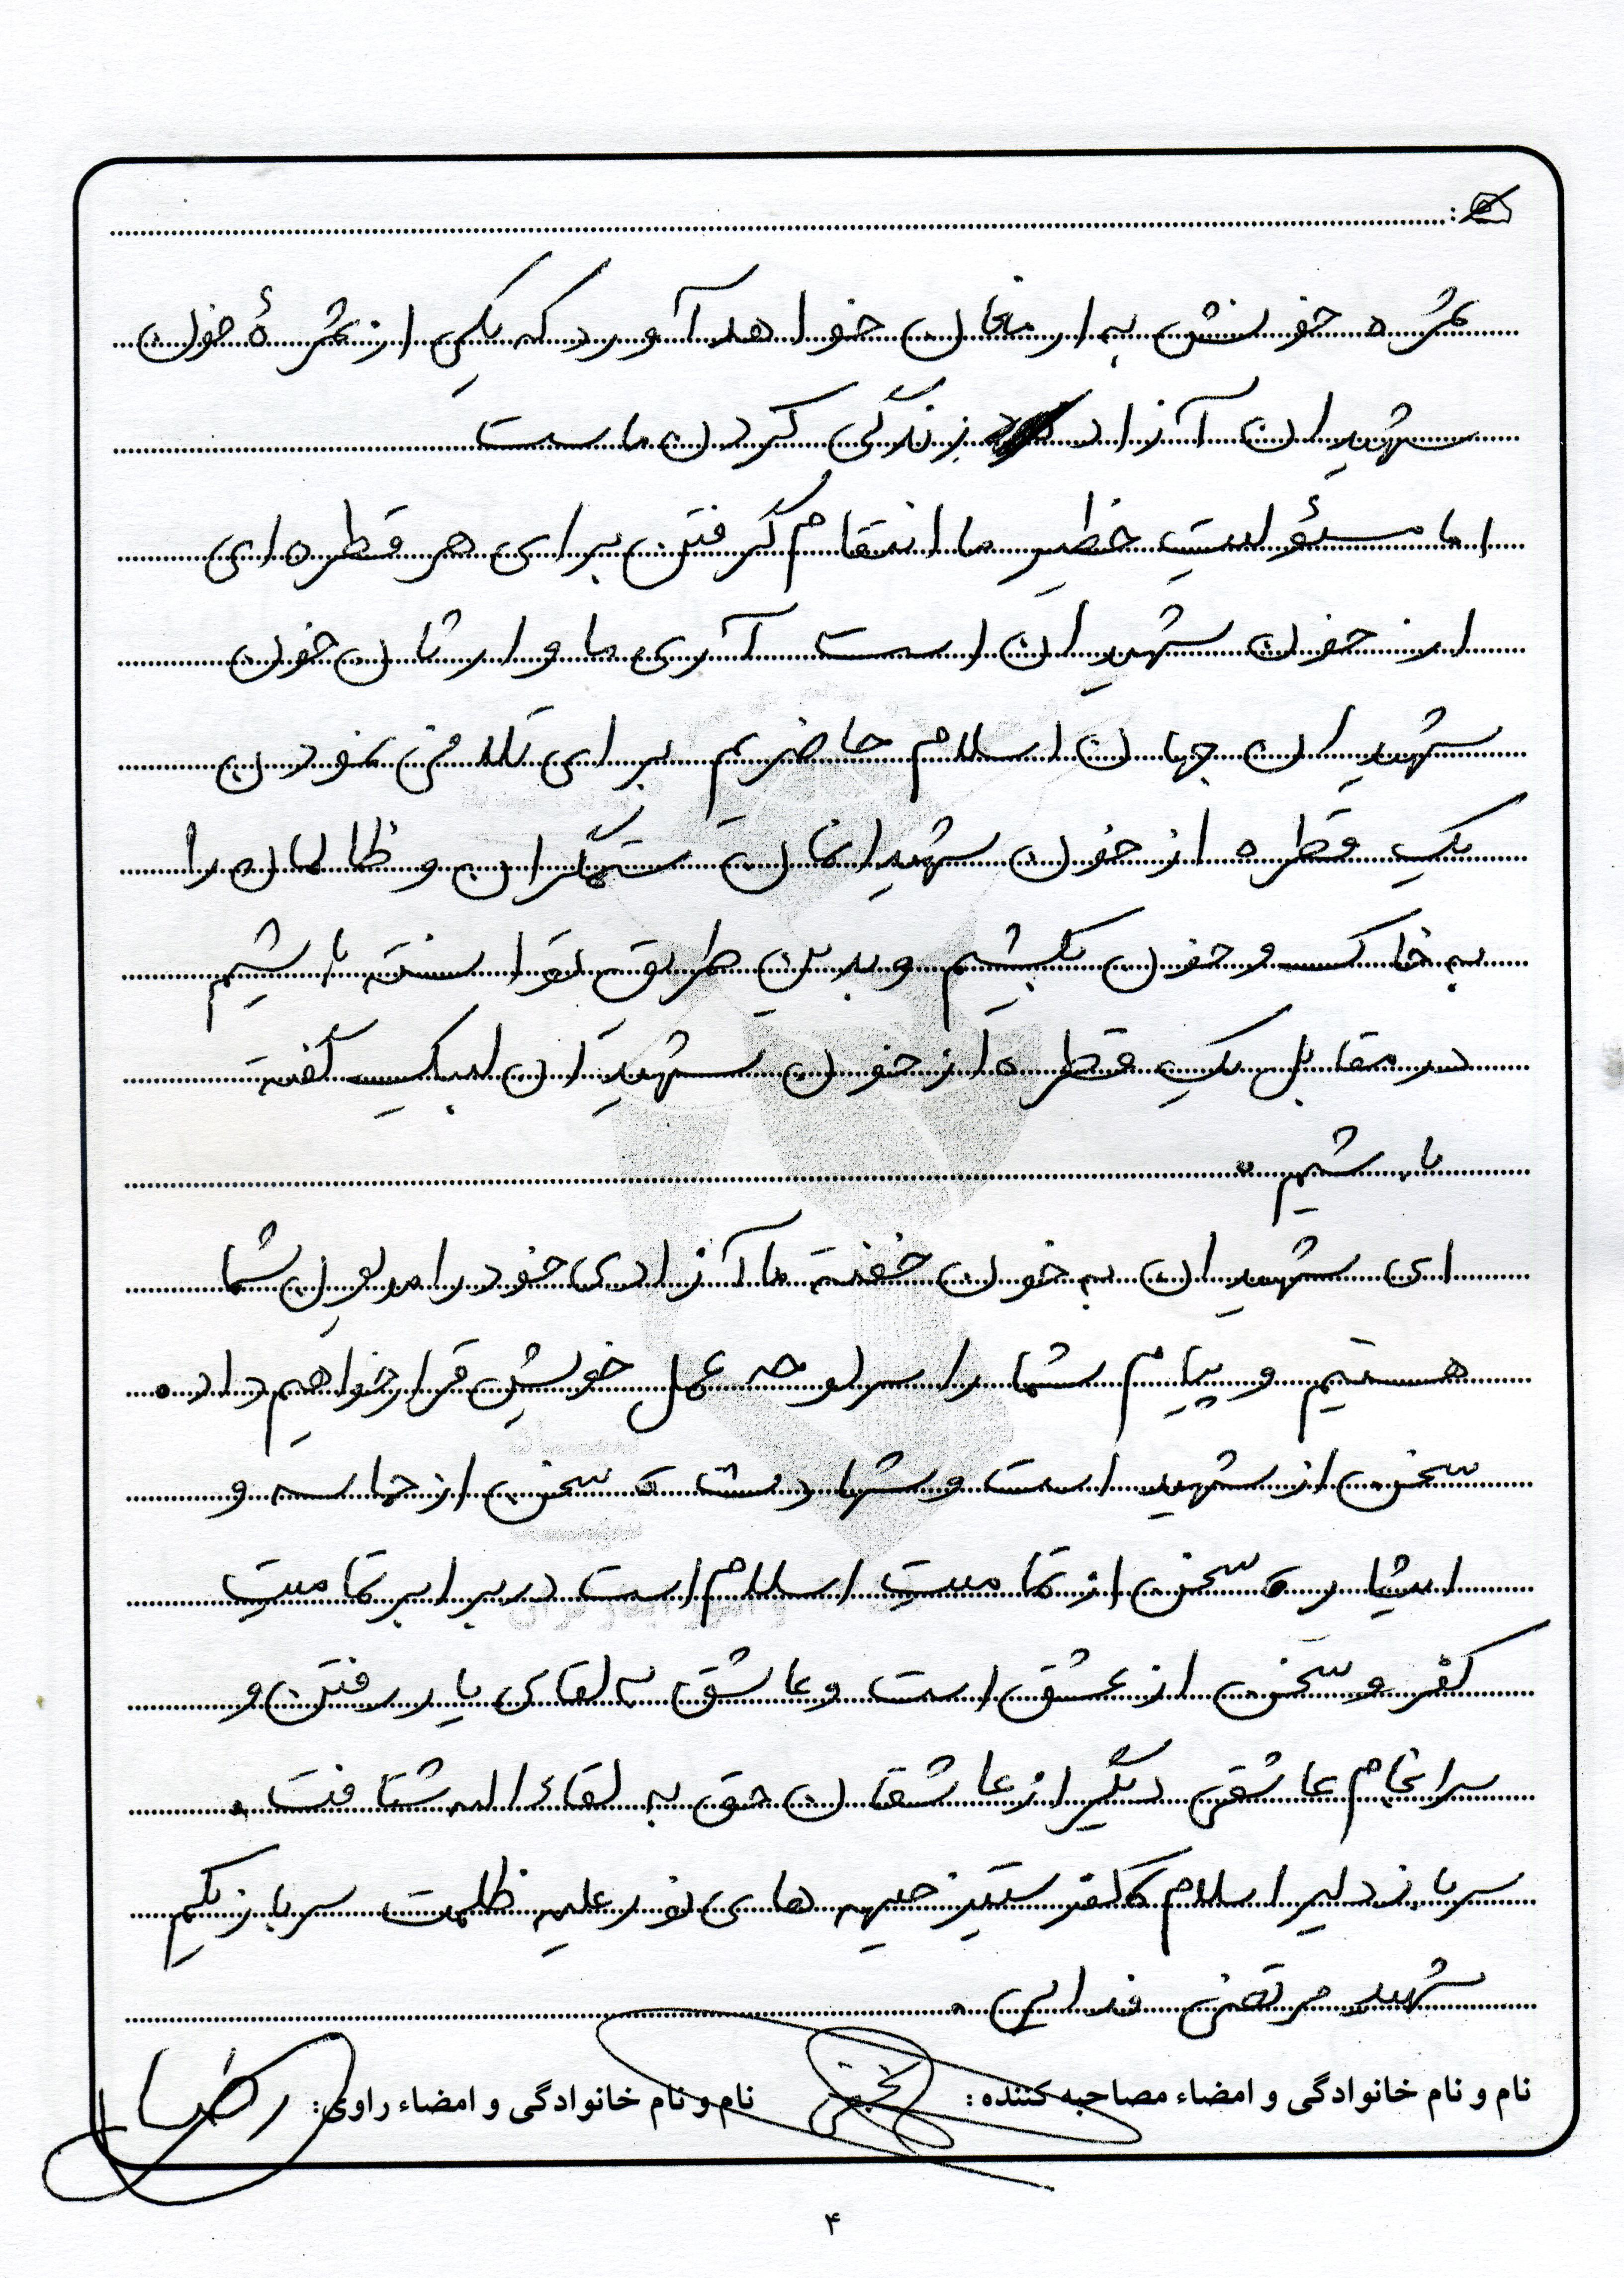 ثمره خونش به ارمغان خواهد آورد که یکی از ثمرهٔ خون
شهیدان آزاد زندگی کردن ماست
اما مسئولیت خطیر ما انتقام گرفتن برای هر قطره ای
از خون شهیدان است آری ما وارثان خون
شهیدان جهان اسلام حاضریم برای تلافی نمودن
یک قطره از خون شهیدانمان ستمگران و ظالمان را
به خاک و خون بکشیم و بدین طریق توانسته باشیم
در مقابل یک قطره از خون شهیدان لبیک گفته
باشیم.
ای شهیدان به خون خفته ما آزادی خود را مدیون شما
هستیم و پیام شما را سرلوحه عمل خویش قرار خواهیم داد.
سخن از شهید است و شهادت، سخن از حماسه و
ایثار، سخن از تمامیت اسلام است در برابر تمامیت
کفر و سخن از عشق است و عاشق به لقای یار رفتن و
سرانجام عاشقی دیگر از عاشقان حق به لقاءالله شتافت.
سرباز دلیر اسلام کافر ستیز جبهه های نور علیه ظلمت سرباز یکم
شهید مرتضی فدایی.
نام و نام خانوادگی و امضاء مصاحبه کننده: نام و نام خانوادگی و امضاء راوی:
۴